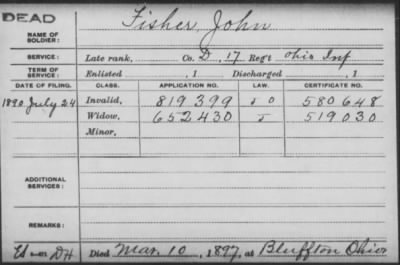 DEAD
NAME OF SOLDIER: Fisher John
SERVICE: Late rank, Co. D, 17 Reg't Ohio Inf
TERM OF SERVICE: Enlisted , 1 Discharged , 1
DATE OF FILING. CLASS. APPLICATION NO. LAW. CERTIFICATE NO.
1890 July 24 Invalid, 819399 J O 580648
Widow, 652430 J 519030
Minor,
ADDITIONAL SERVICES:
REMARKS:
DH Died Mar. 10, 1897, at Bluffton Ohio